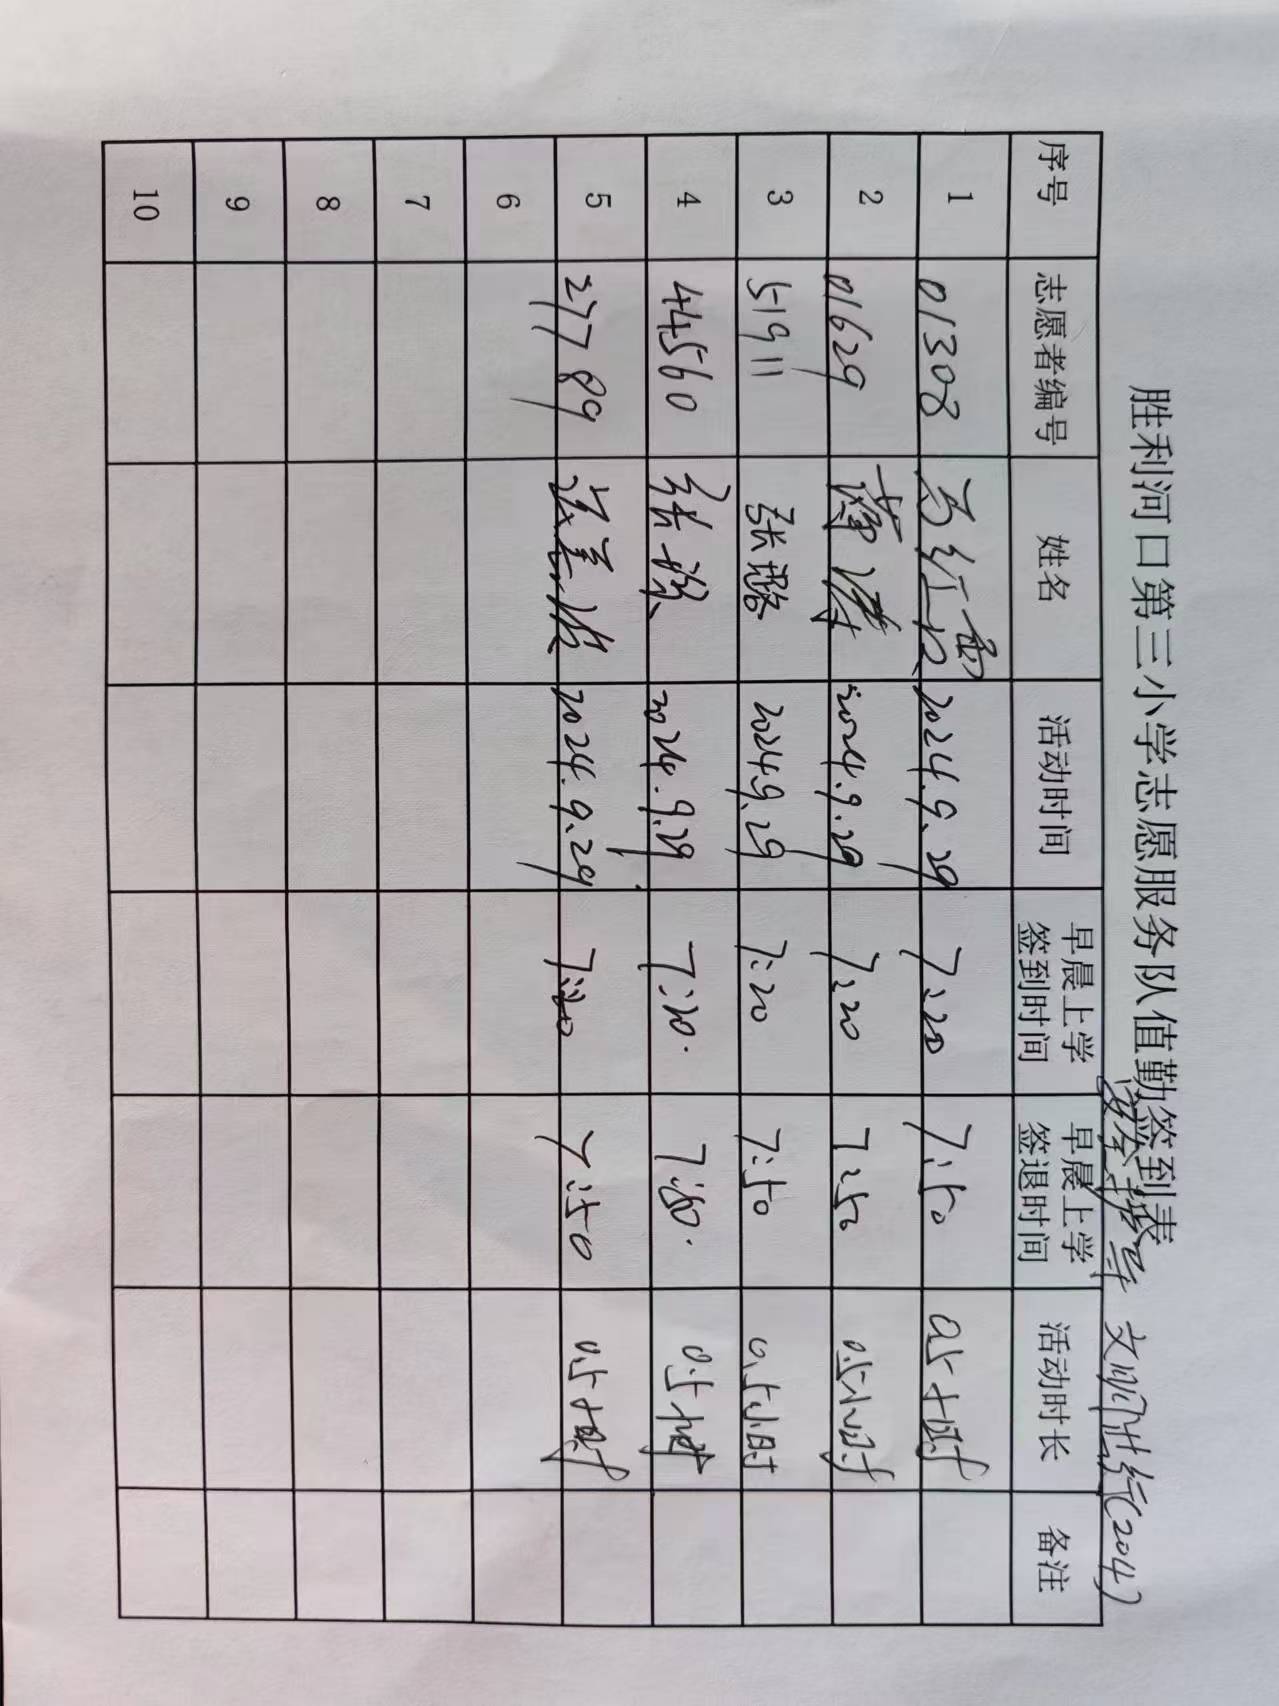 胜利河口第三小学志愿服务队值勤签到表
安全指导 文明出行(204)
序号 志愿者编号 姓名 活动时间 早晨上学签到时间 早晨上学签退时间 活动时长 备注
1 01308 2024.9.29 7:20 7:50 0.5小时
2 01629 2024.9.29 7:20 7:50 0.5小时
3 51911 张璐 2024.9.29 7:20 7:50 0.5小时
4 44560 2024.9.29 7:20. 7:50. 0.5小时
5 27789 2024.9.29 7:20 7:50 0.5小时
6
7
8
9
10